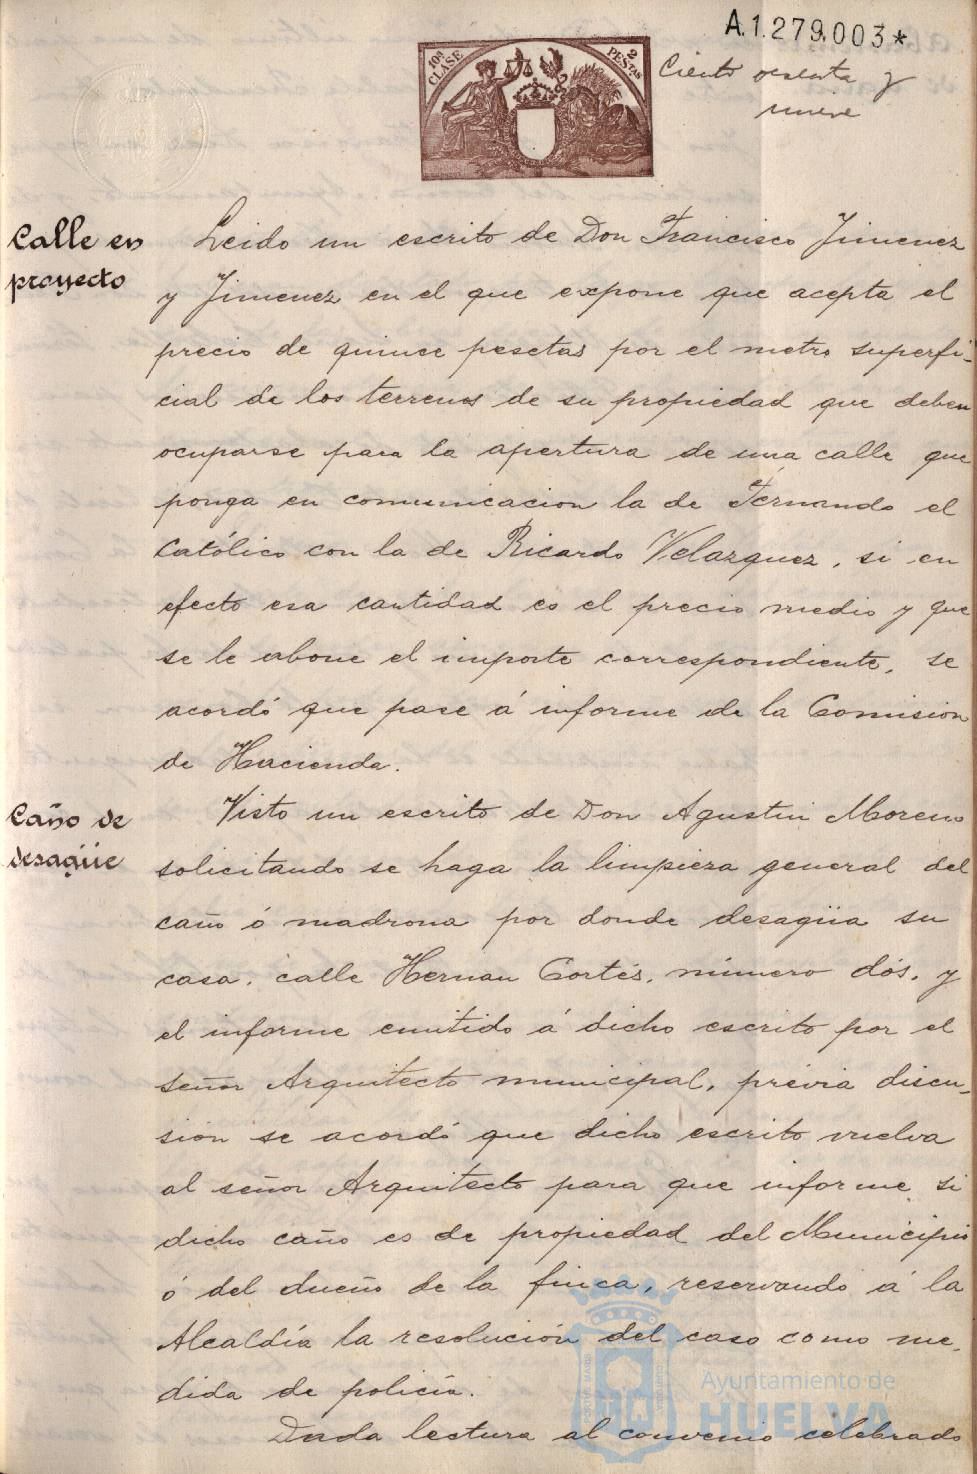 A.1.279.003*
10ª CLASE
2 PESTAS
Ciento ochenta y
nueve
Calle en
proyecto
Leido un escrito de Don Francisco Jimenez
y Jimenez en el que expone que acepta el
precio de quince pesetas por el metro superfi-
cial de los terrenos de su propiedad que deben
ocuparse para la apertura de una calle que
ponga en comunicacion la de Fernando el
Católico con la de Ricardo Velazquez, si en
efecto esa cantidad es el precio medio y que
se le abone el importe correspondiente, se
acordó que pase á informe de la Comision
de Hacienda.
Caño de
desagüe
Visto un escrito de Don Agustin Moreno
solicitando se haga la limpieza general del
caño ó madrona por donde desagüa su
casa, calle Hernan Cortés, número dós, y
el informe emitido á dicho escrito por el
señor Arquitecto municipal, prévia discu-
sion se acordó que dicho escrito vuelva
al señor Arquitecto para que informe si
dicho caño es de propiedad del Municipio
ó del dueño de la finca, reservando á la
Alcaldía la resolución del caso como me-
dida de policía.
Dada lectura al convenio celebrado
Ayuntamiento de
HUELVA